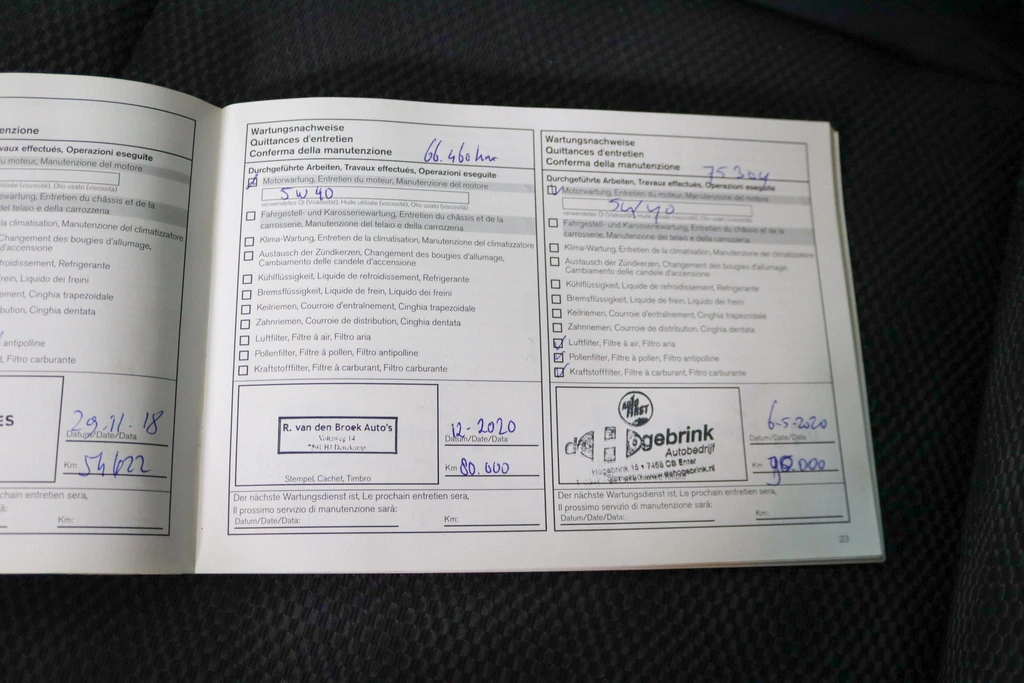 enzione
vaux effectués, Operazioni eseguite
u moteur, Manutenzione del motore
utilisée (viscosité), Olio usato (viscosità)
ewartung, Entretien du châssis et de la
del telaio e della carrozzeria
la climatisation, Manutenzione del climatizzatore
Changement des bougies d'allumage,
d'accensione
refroidissement, Refrigerante
frein, Liquido dei freini
ement, Cinghia trapezoidale
bution, Cinghia dentata
antipolline
t, Filtro carburante
ES
29.11.18
Datum/Date/Data
Km 54622
chain entretien sera,
rà:
Km:
Wartungsnachweise
Quittances d'entretien
Conferma della manutenzione
66.460 km
Durchgeführte Arbeiten, Travaux effectués, Operazioni eseguite
Motorwartung, Entretien du moteur, Manutenzione del motore
5W40
verwendetes Öl (Viskosität), Huile utilisée (viscosité), Olio usato (viscosità)
Fahrgestell- und Karosseriewartung, Entretien du châssis et de la
carrosserie, Manutenzione del telaio e della carrozzeria
Klima-Wartung, Entretien de la climatisation, Manutenzione del climatizzatore
Austausch der Zündkerzen, Changement des bougies d'allumage,
Cambiamento delle candele d'accensione
Kühlflüssigkeit, Liquide de refroidissement, Refrigerante
Bremsflüssigkeit, Liquide de frein, Liquido dei freini
Keilriemen, Courroie d'entraînement, Cinghia trapezoidale
Zahnriemen, Courroie de distribution, Cinghia dentata
Luftfilter, Filtre à air, Filtro aria
Pollenfilter, Filtre à pollen, Filtro antipolline
Kraftstofffilter, Filtre à carburant, Filtro carburante
R. van den Broek Auto's
Stempel, Cachet, Timbro
12-2020
Datum/Date/Data
Km 80.000
Der nächste Wartungsdienst ist, Le prochain entretien sera,
Il prossimo servizio di manutenzione sarà:
Datum/Date/Data:
Km:
Wartungsnachweise
Quittances d'entretien
Conferma della manutenzione
75304
Durchgeführte Arbeiten, Travaux effectués, Operazioni eseguite
Motorwartung, Entretien du moteur, Manutenzione del motore
5W40
verwendetes Öl (Viskosität), Huile utilisée (viscosité), Olio usato (viscosità)
Fahrgestell- und Karosseriewartung, Entretien du châssis et de la
carrosserie, Manutenzione del telaio e della carrozzeria
Klima-Wartung, Entretien de la climatisation, Manutenzione del climatizzatore
Austausch der Zündkerzen, Changement des bougies d'allumage,
Cambiamento delle candele d'accensione
Kühlflüssigkeit, Liquide de refroidissement, Refrigerante
Bremsflüssigkeit, Liquide de frein, Liquido dei freini
Keilriemen, Courroie d'entraînement, Cinghia trapezoidale
Zahnriemen, Courroie de distribution, Cinghia dentata
Luftfilter, Filtre à air, Filtro aria
Pollenfilter, Filtre à pollen, Filtro antipolline
Kraftstofffilter, Filtre à carburant, Filtro carburante
Auto
FIRST
gebrink
Autobedrijf
Hogebrink 15 • 7468 CB Enter
6-5-2020
Datum/Date/Data
Km 90.000
Der nächste Wartungsdienst ist, Le prochain entretien sera,
Il prossimo servizio di manutenzione sarà:
Datum/Date/Data:
Km:
23